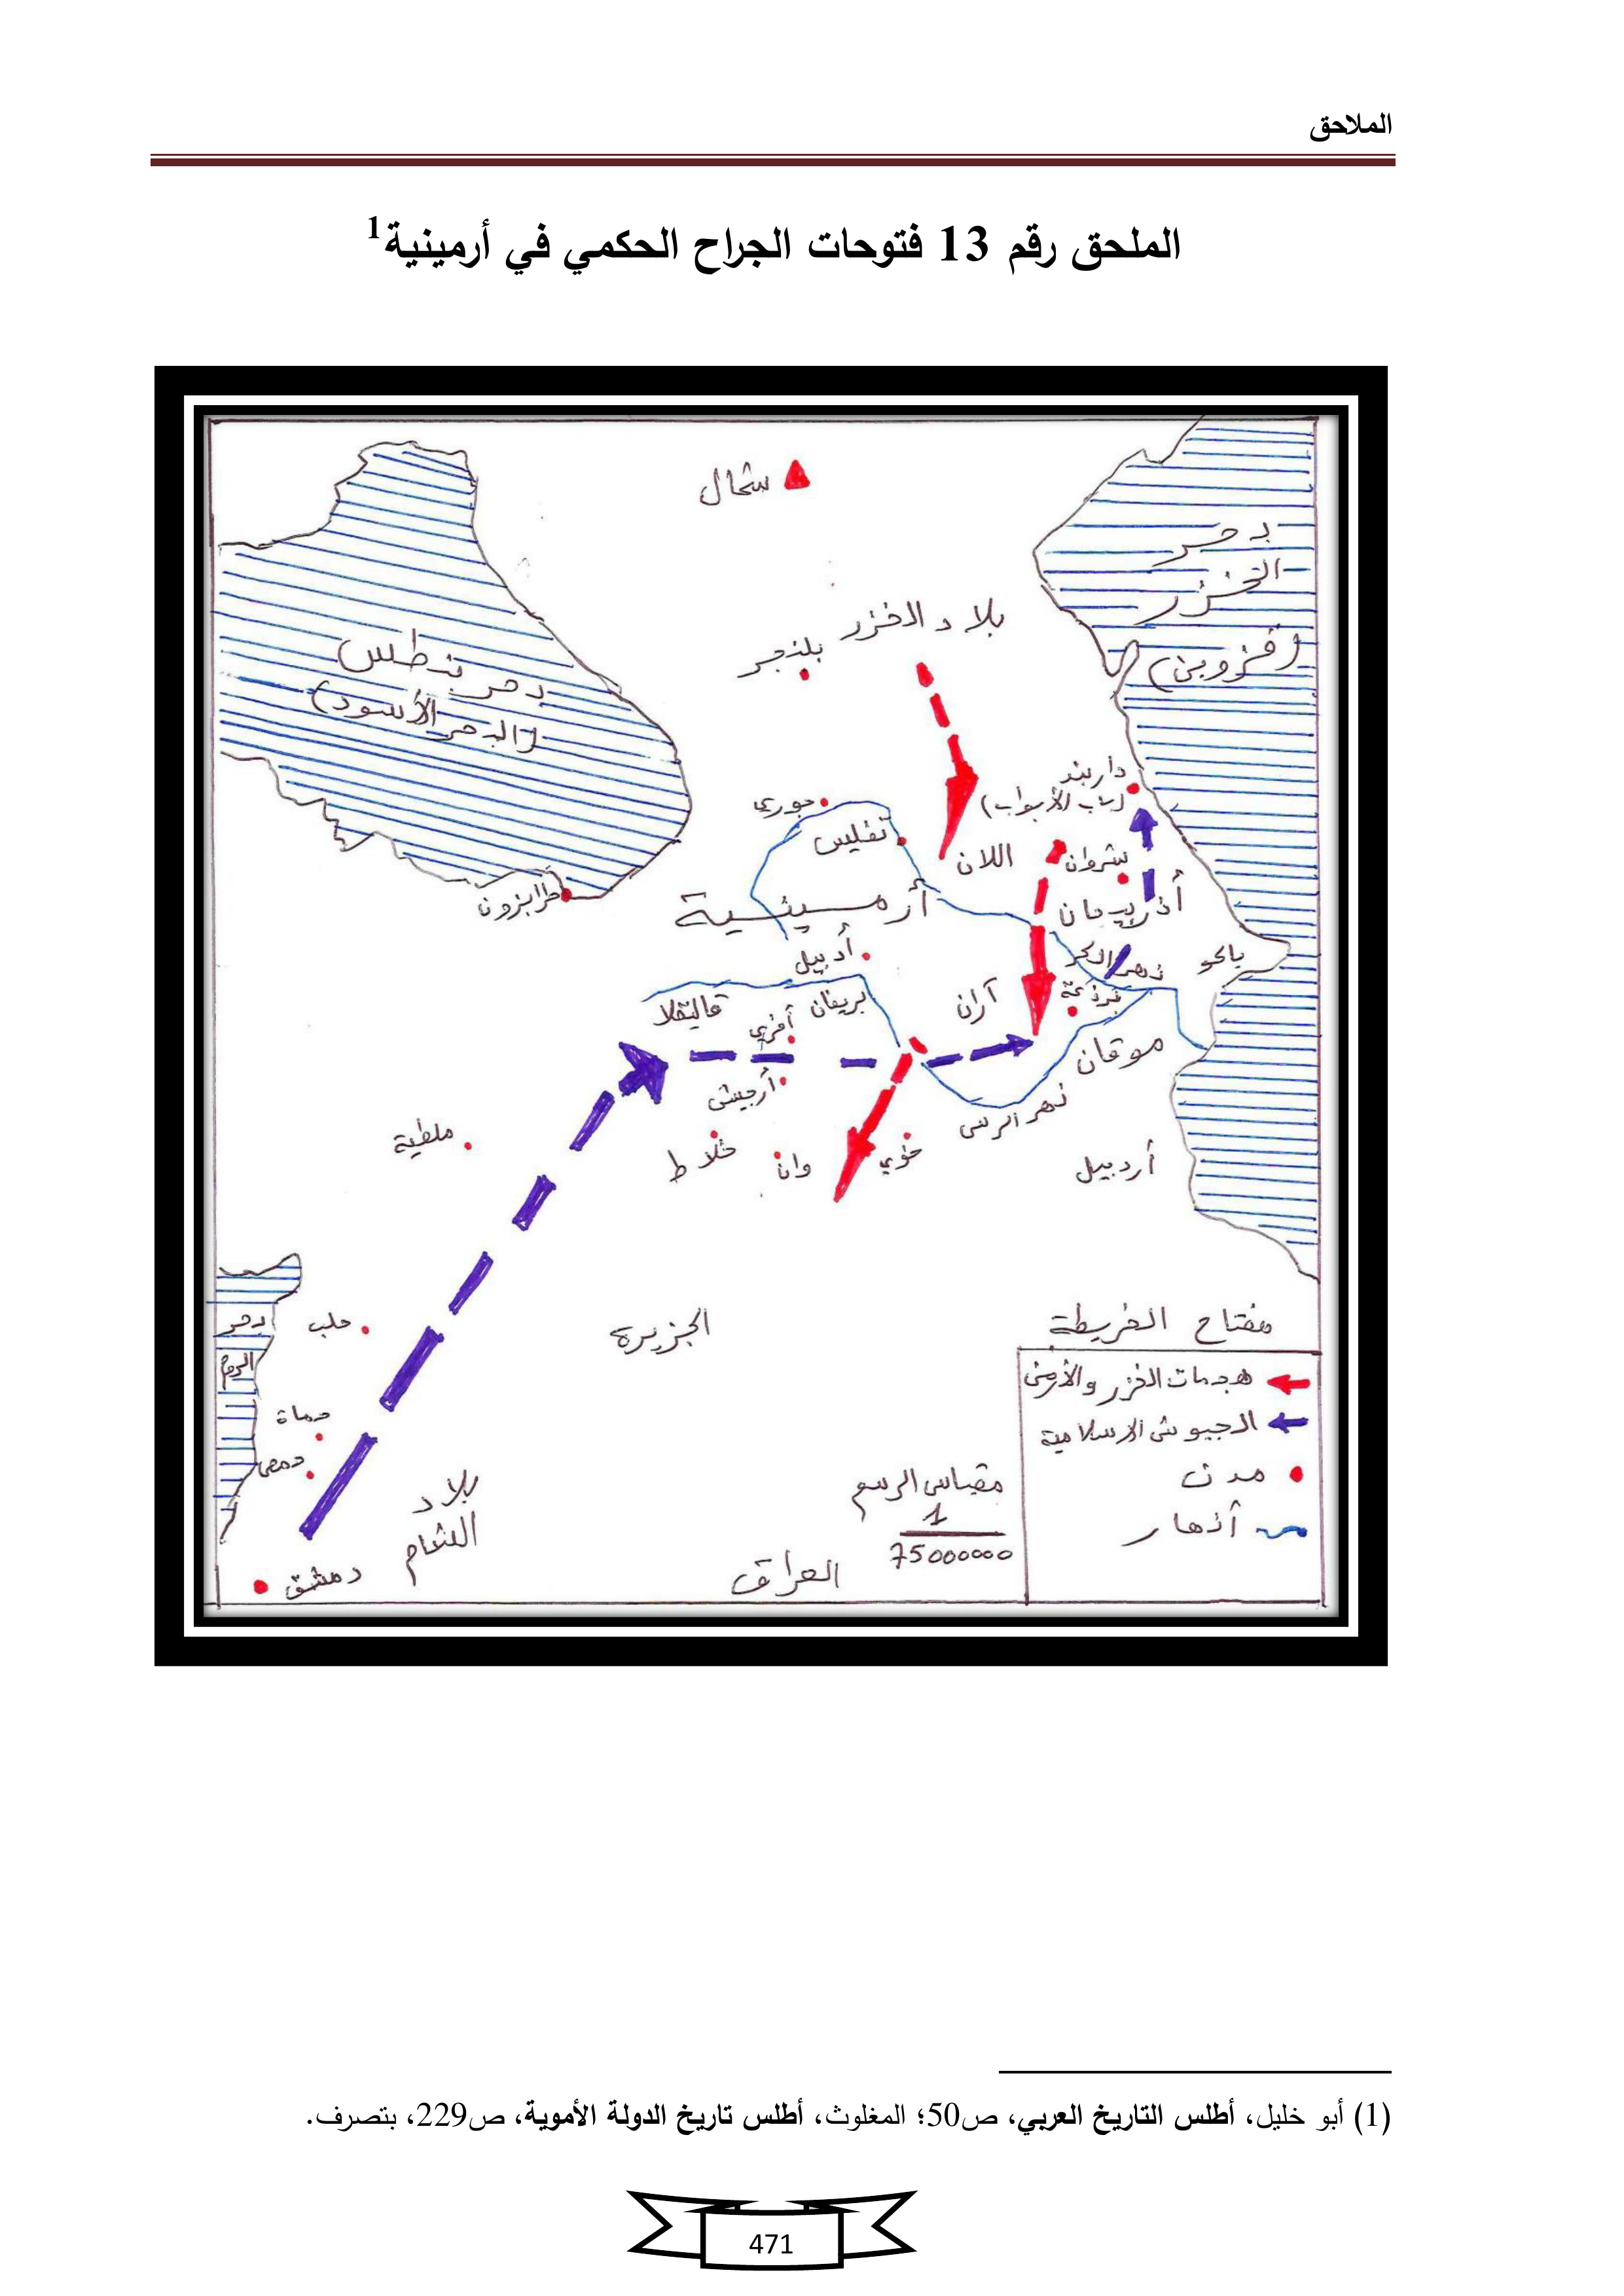 الملاحق
الملحق رقم 13 فتوحات الجراح الحكمي في أرمينية1
شمال
بحر
الخزر
(قزوين)
بلاد الخزر
بلنجر
بحر بنطس
(البحر الأسود)
داربند
(باب الأبواب)
جوري
تفليس
اللان
شروان
طرابزون
أرمينية
أذربيجان
أدبيل
نهر الكر
باكو
قاليقلا
بريفان
آران
برذعة
أرجيش
موقان
نهر الرس
ملطية
خلاط
وان
خوي
أردبيل
بحر
الروم
حلب
الجزيرة
حماة
حمص
بلاد
الشام
دمشق
العراق
مقياس الرسم
1
75000000
مفتاح الخريطة
هجمات الخزر والأرمن
الجيوش الاسلامية
مدن
أنهار
(1) أبو خليل، أطلس التاريخ العربي، ص50؛ المغلوث، أطلس تاريخ الدولة الأموية، ص229، بتصرف.
471